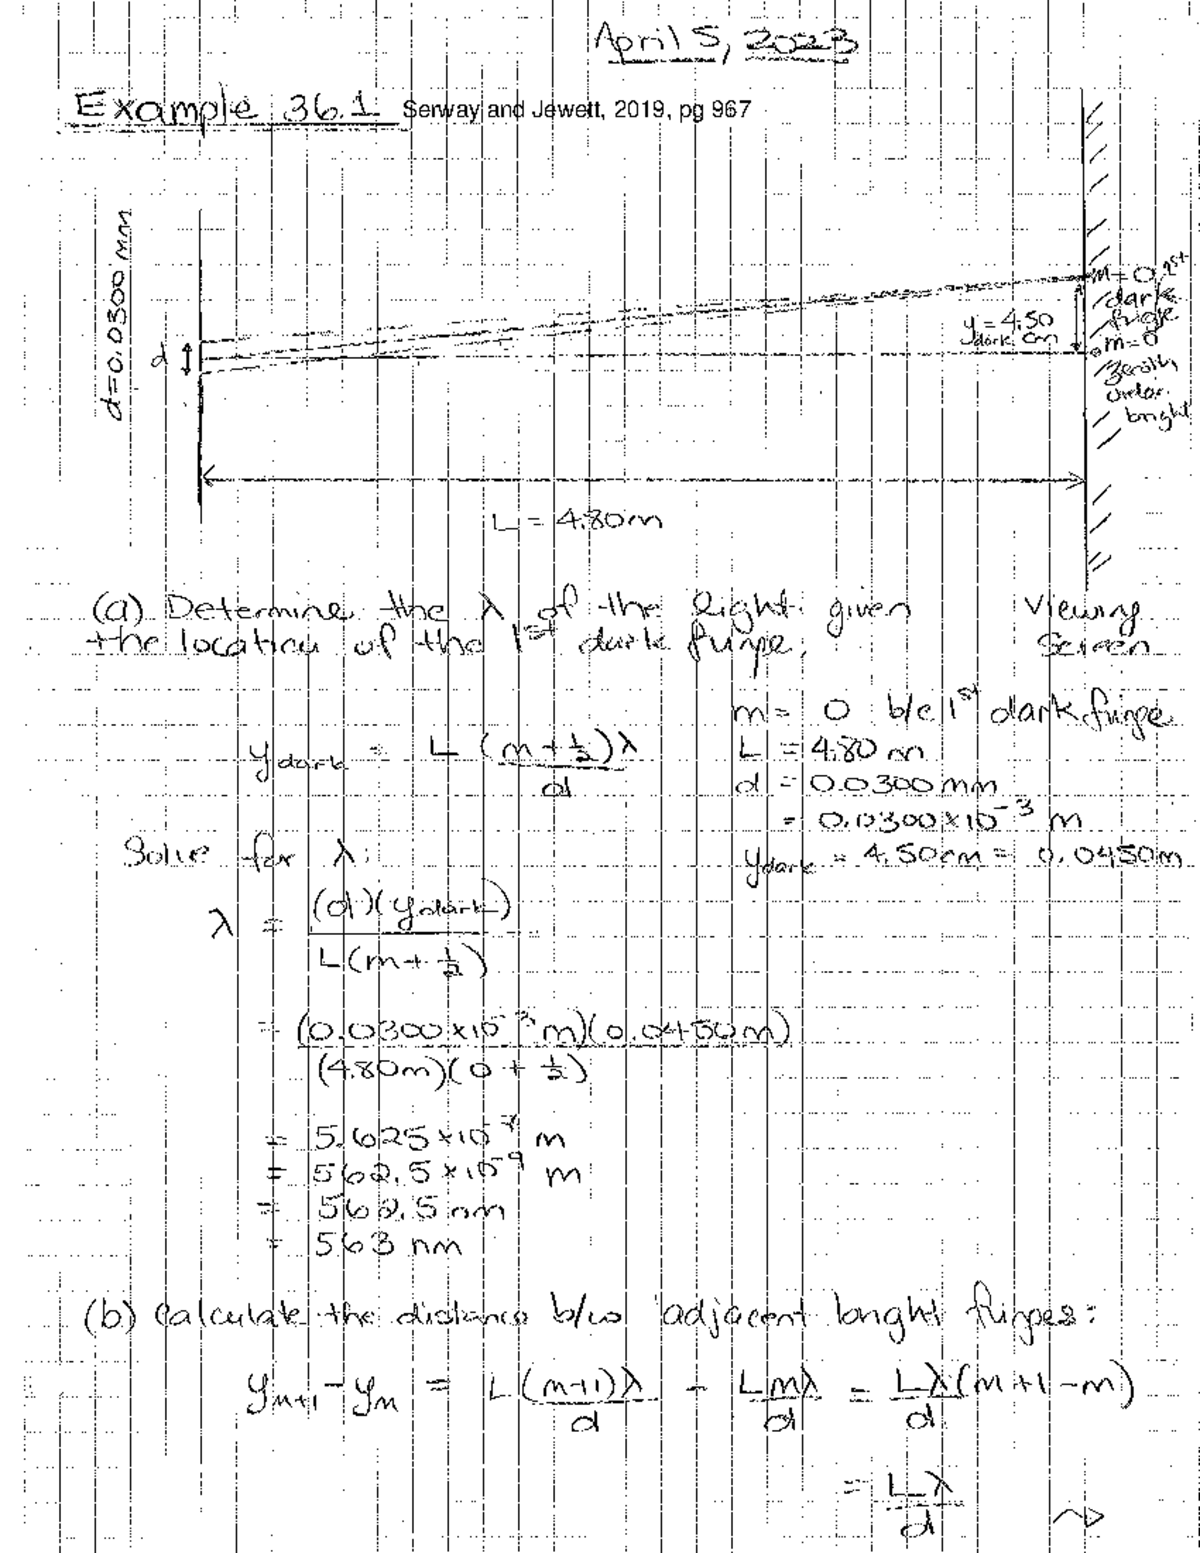 April 5, 2023
Example 36.1 Serway and Jewett, 2019, pg 967
d=0.0300 mm
d
m=0 1st
dark
fringe
y dark = 4.50 cm
m=0
zeroth
order
bright
L = 4.80m
(a) Determine the λ of the light given
the location of the 1st dark fringe.
Viewing
Screen
m = 0 b/c 1st dark fringe
y dark = L (m + 1/2)λ / d
L = 4.80 m
d = 0.0300 mm
= 0.0300 x 10^-3 m
y dark = 4.50cm = 0.0450m
Solve for λ:
λ = (d)(y dark) / L(m + 1/2)
= (0.0300 x10^-3 m)(0.0450m) / (4.80m)(0 + 1/2)
= 5.625 x 10^-7 m
= 562.5 x 10^-9 m
= 562.5 nm
= 563 nm
(b) Calculate the distance b/w adjacent bright fringes:
y m+1 - y m = L(m+1)λ / d - Lmλ / d = Lλ / d (m+1-m)
= Lλ / d